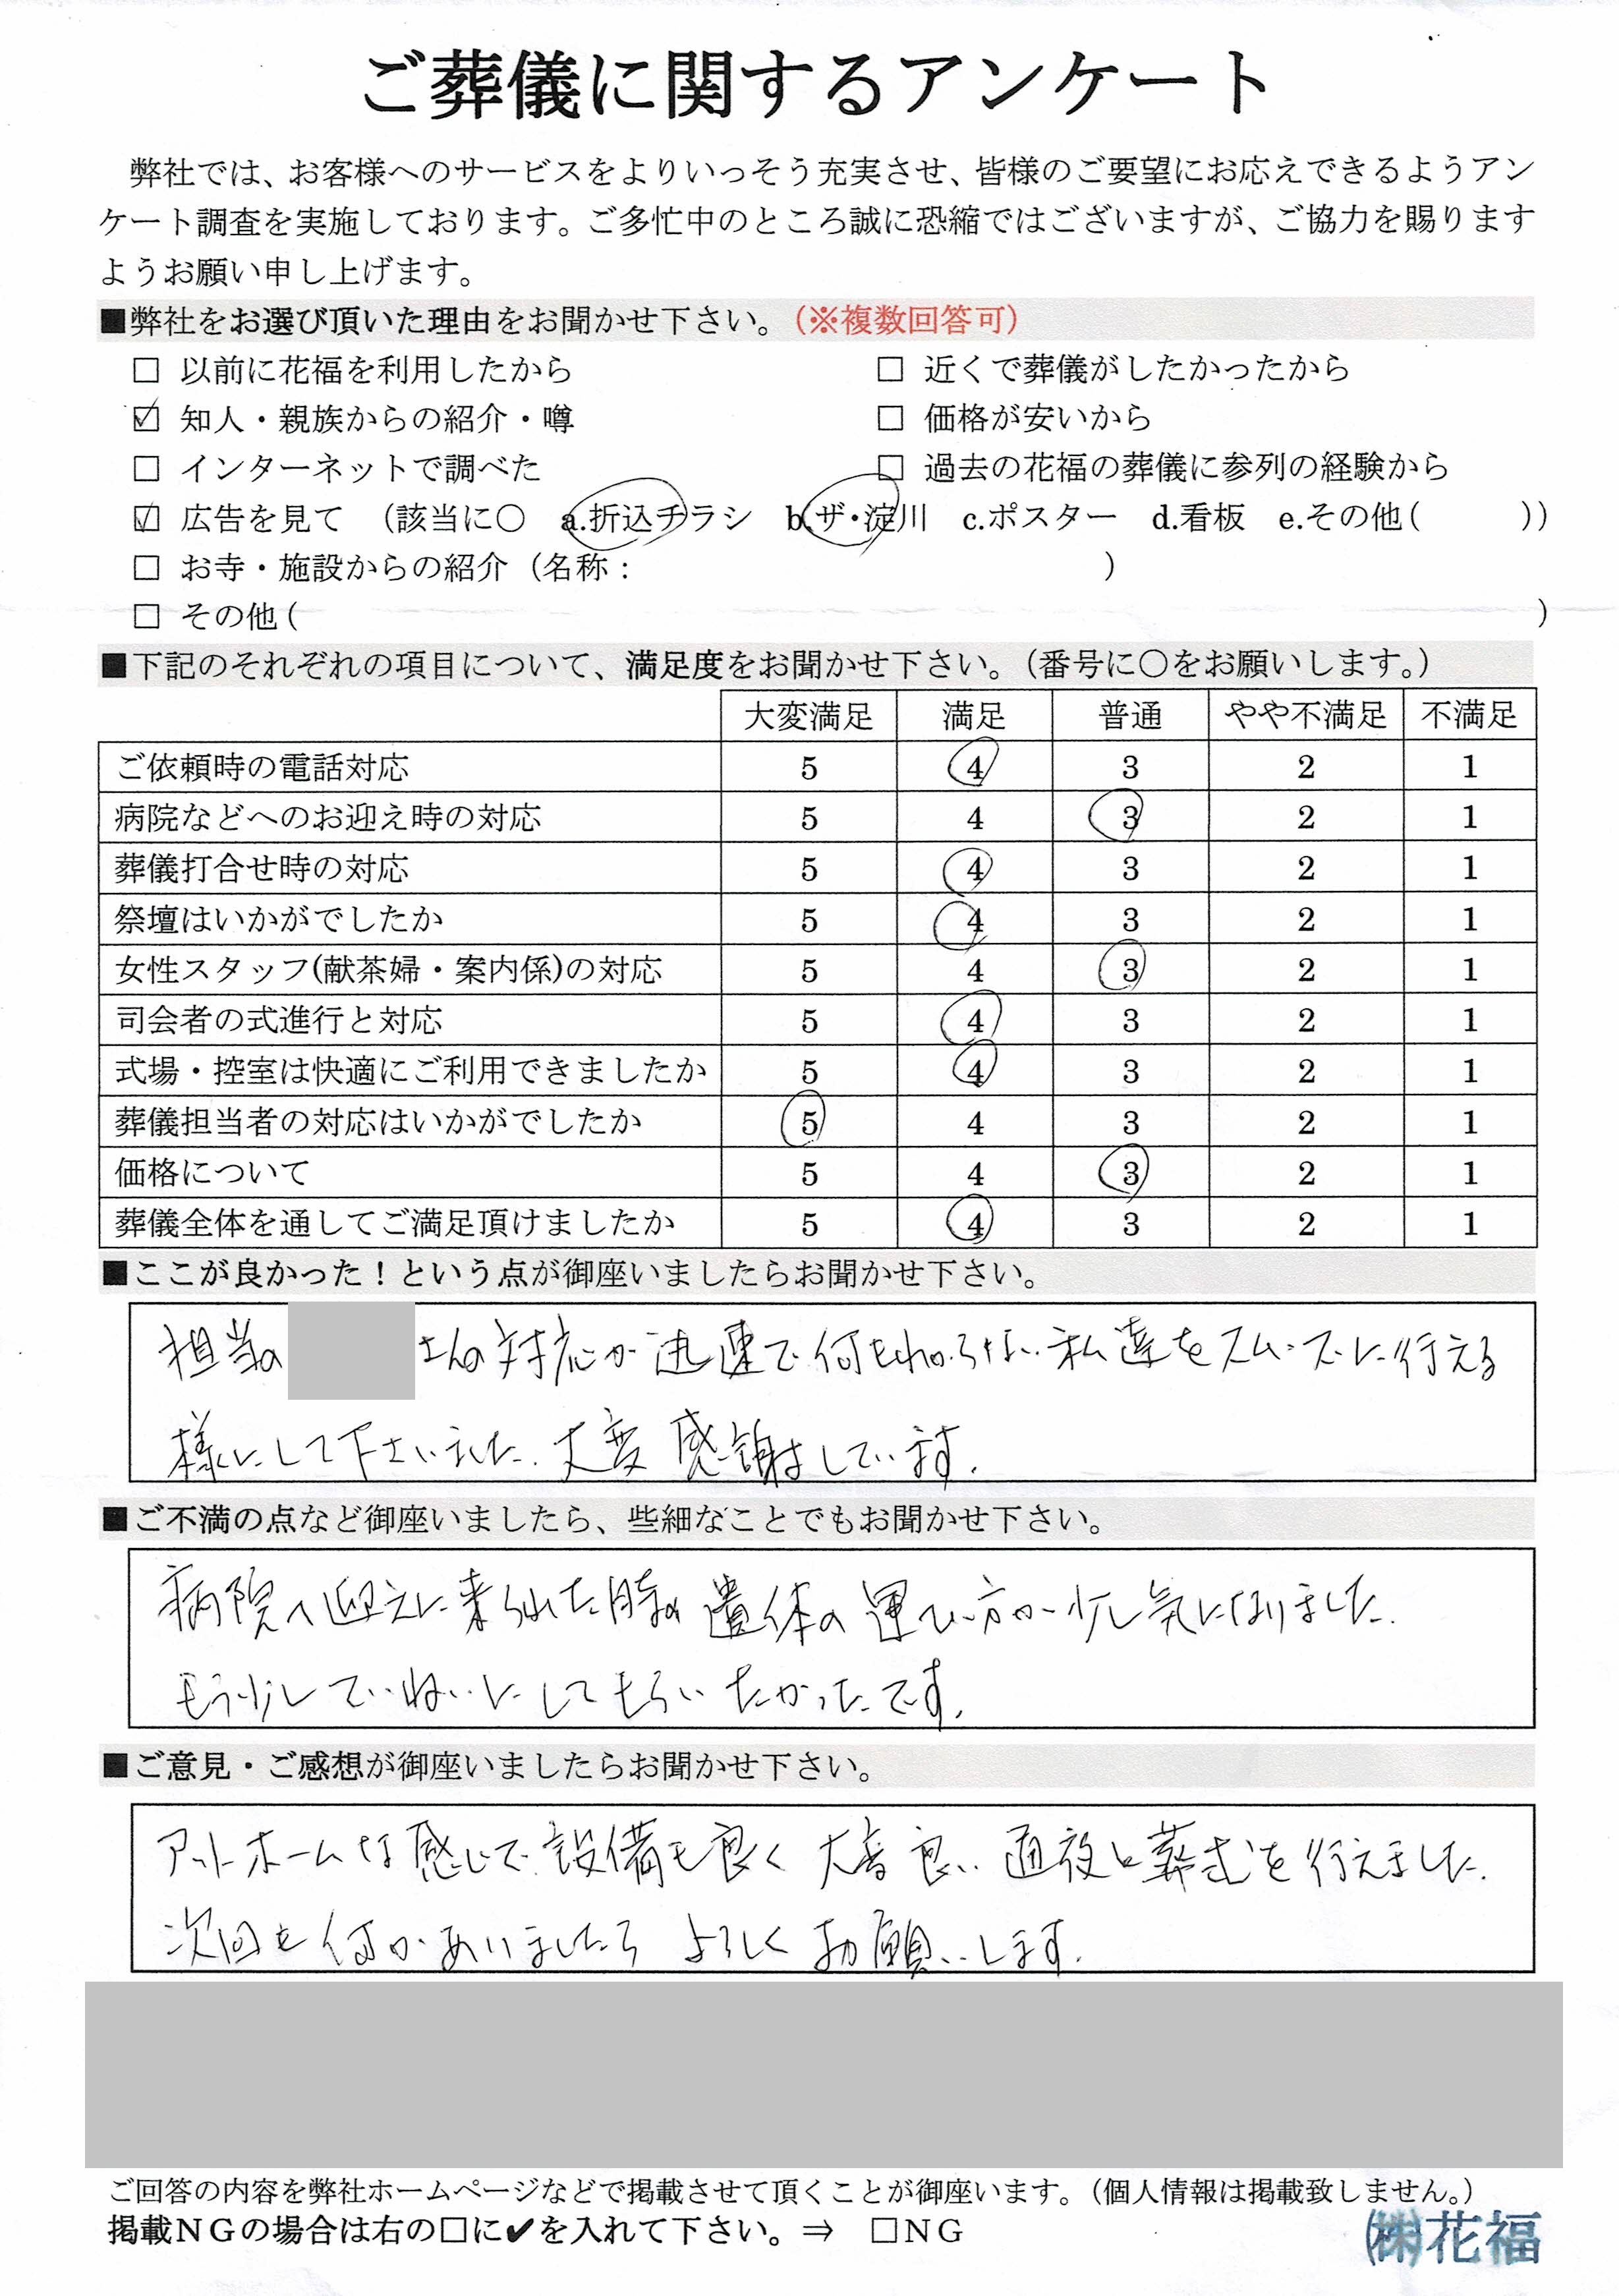 ご葬儀に関するアンケート
弊社では、お客様へのサービスをよりいっそう充実させ、皆様のご要望にお応えできるようアン
ケート調査を実施しております。ご多忙中のところ誠に恐縮ではございますが、ご協力を賜ります
ようお願い申し上げます。
■弊社をお選び頂いた理由をお聞かせ下さい。（※複数回答可）
□ 以前に花福を利用したから □ 近くで葬儀がしたかったから
☑ 知人・親族からの紹介・噂 □ 価格が安いから
□ インターネットで調べた □ 過去の花福の葬儀に参列の経験から
☑ 広告を見て （該当に〇 a.折込チラシ b.ザ・淀川 c.ポスター d.看板 e.その他( )）
□ お寺・施設からの紹介（名称： ）
□ その他( )
■下記のそれぞれの項目について、満足度をお聞かせ下さい。（番号に〇をお願いします。）
大変満足 満足 普通 やや不満足 不満足
ご依頼時の電話対応 5 4 3 2 1
病院などへのお迎え時の対応 5 4 3 2 1
葬儀打合せ時の対応 5 4 3 2 1
祭壇はいかがでしたか 5 4 3 2 1
女性スタッフ(献茶婦・案内係)の対応 5 4 3 2 1
司会者の式進行と対応 5 4 3 2 1
式場・控室は快適にご利用できましたか 5 4 3 2 1
葬儀担当者の対応はいかがでしたか 5 4 3 2 1
価格について 5 4 3 2 1
葬儀全体を通してご満足頂けましたか 5 4 3 2 1
■ここが良かった！という点が御座いましたらお聞かせ下さい。
担当の さんの対応が迅速で何もわからない私達をスムーズに行える
様にして下さいました。大変感謝しています。
■ご不満の点など御座いましたら、些細なことでもお聞かせ下さい。
病院へ迎えに来られた時の遺体の運び方が少し気になりました。
もう少していねいにしてもらいたかったです。
■ご意見・ご感想が御座いましたらお聞かせ下さい。
アットホームな感じで設備も良く 大変良い 通夜と葬式を行えました。
次回も何かありましたら よろしくお願いします。
ご回答の内容を弊社ホームページなどで掲載させて頂くことが御座います。（個人情報は掲載致しません。）
掲載ＮＧの場合は右の□に✔を入れて下さい。⇒ □ＮＧ
㈱花福